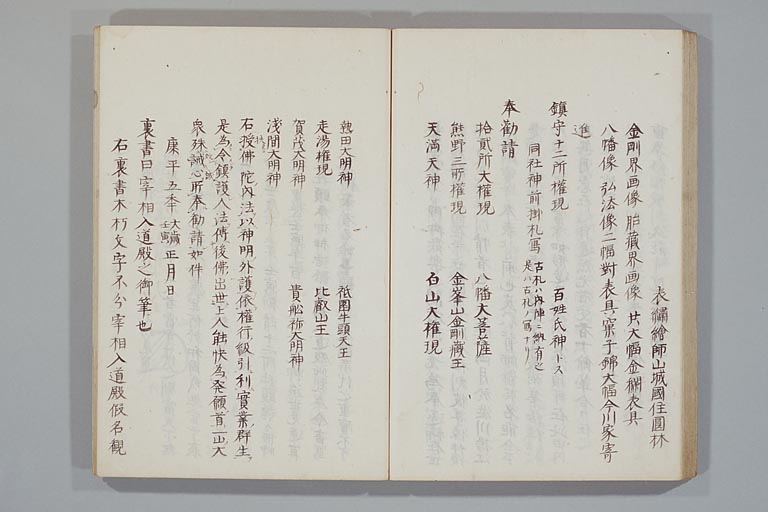 表繍繪師山城國住圓林
金剛界画像 胎藏界画像 共大幅金襴表具
八幡像 弘法像二幅對表具窠子錦大幅今川家寄
進
鎮守十二所權現 百姓氏神トス
同社神前掛札寫 古札ハ内陣ニ納有之
是ハ古札ノ寫ナリ
奉勸請
拾貳所大權現 八幡大菩薩
熊野三所權現 金峯山金剛藏王
天満天神 白山大權現
熱田大明神 祇園牛頭天王
走湯權現 比叡山王
賀茂大明神 貴舩祢大明神
浅間大明神
右授佛陀内法以神明外護依權行級引利實業群生
是為令鎮護人法傳後佛出世上人能快為発願首一山大
衆殊誠心所奉勸請如件
康平五季 大歳壬寅 正月日
裏書曰宰相入道殿之御筆也
右裏書木朽文字不分宰相入道殿假名觀